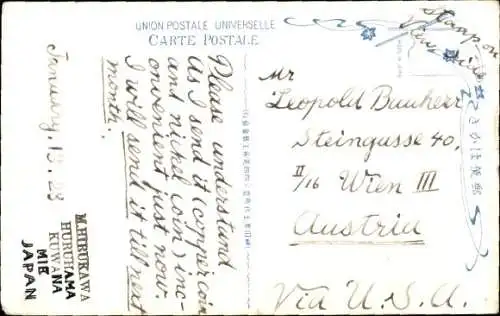 UNION POSTALE UNIVERSELLE
CARTE POSTALE
Stamp on
View side
Please understand
As I send it (copper coin
and nickel coin) inc-
onvenient just now
I will send it till next
month.
January. 13. 23
M.HIBUKAWA
HURUHAMA
KUWANA
MIE
JAPAN
Mr
Leopold Bauherr
Steingasse 40,
II/16 Wien III
Austria
Via U.S.A.
きかは便郵